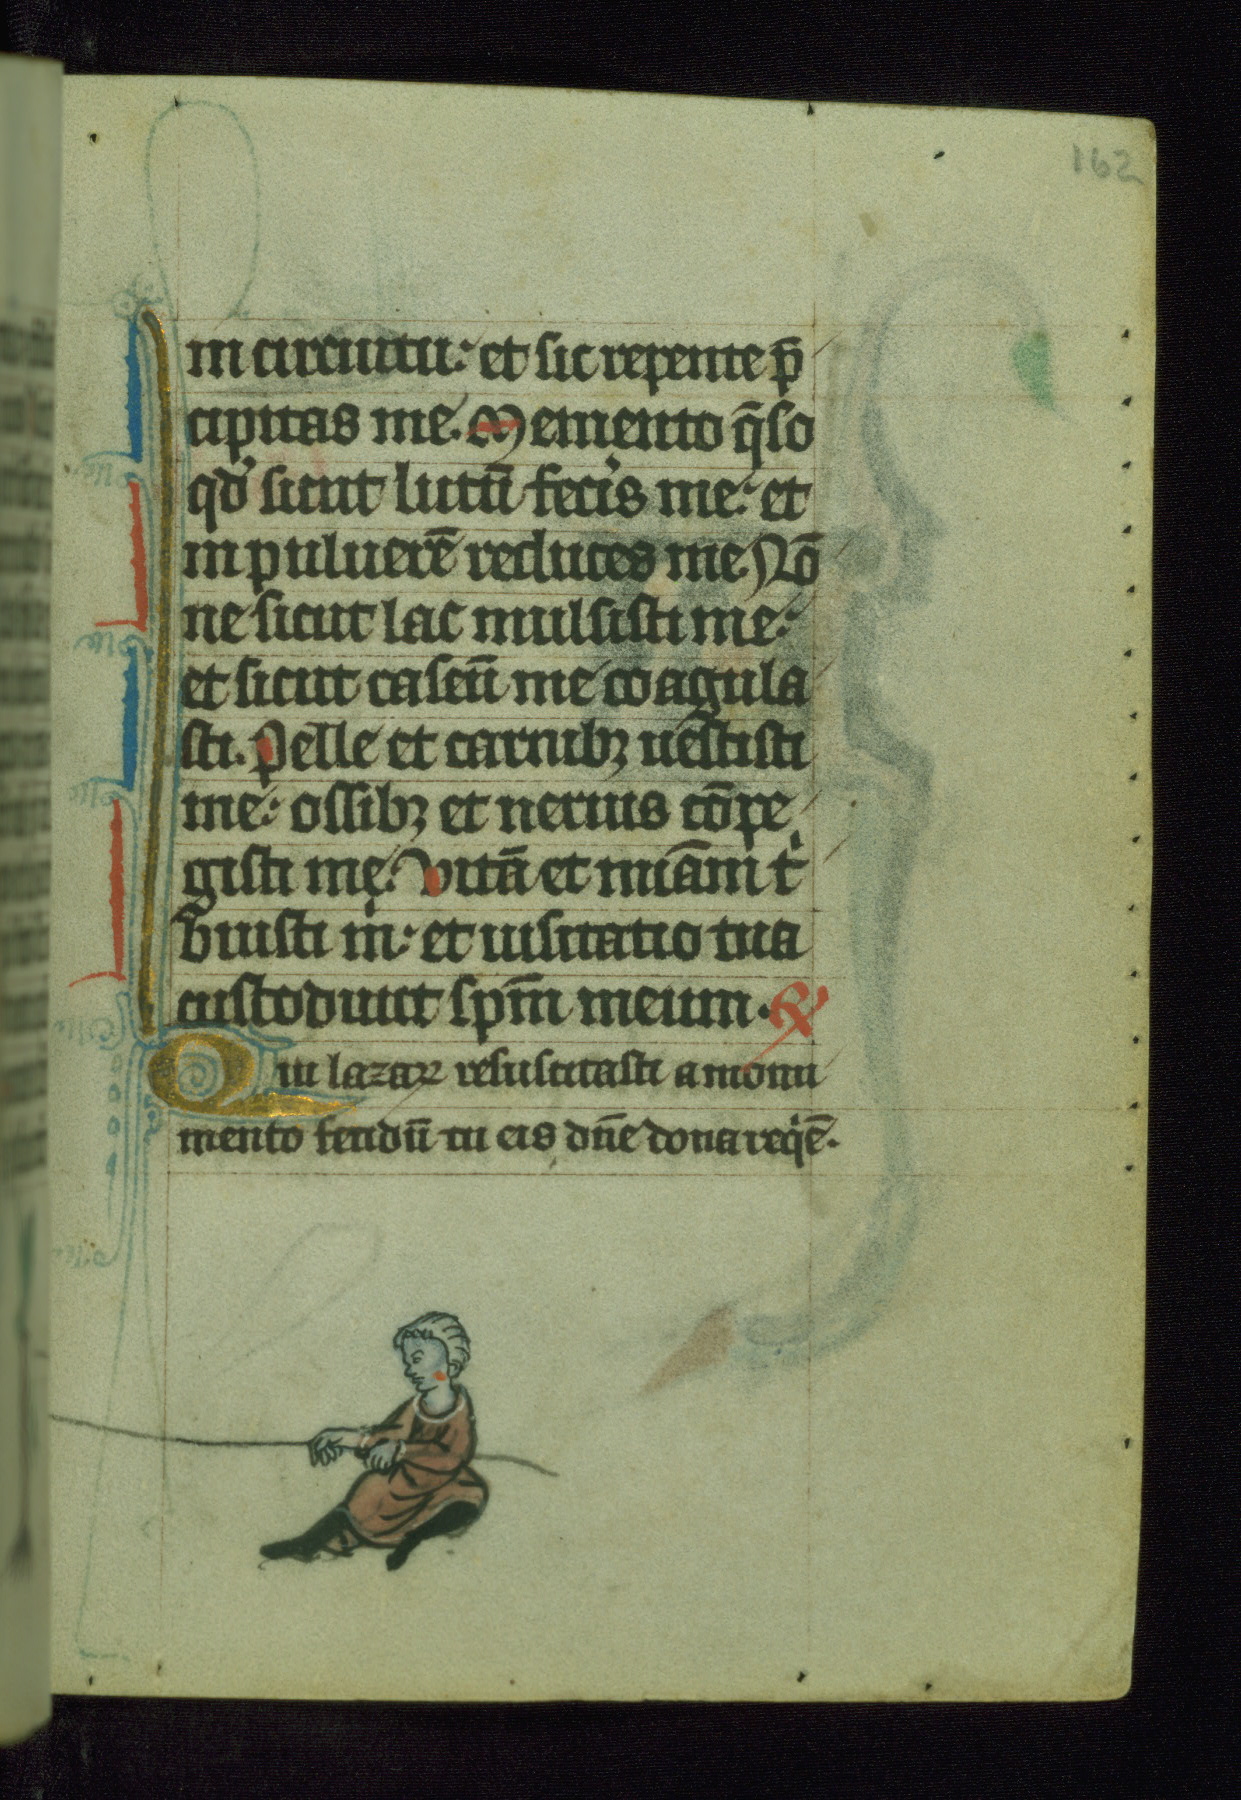 162
in circuitu: et sic repente p̄
cipitas me. Memento q̄so
qd̓ sicut lutū feceris me: et
in puluerē reduces me. Nō
ne sicut lac mulsisti me:
et sicut caseū me coagula
sti. Pelle et carnibꝫ uestisti
me: ossibꝫ et neruis cōpe
gisti me. Vitā et mīam t̓
buisti m̄: et uisitatio tua
custodiuit sp̄m meum. ℟
Qui lazaꝝ resuscitasti a monu
mento fetidū tu eis dn̄e dona reqͥē.